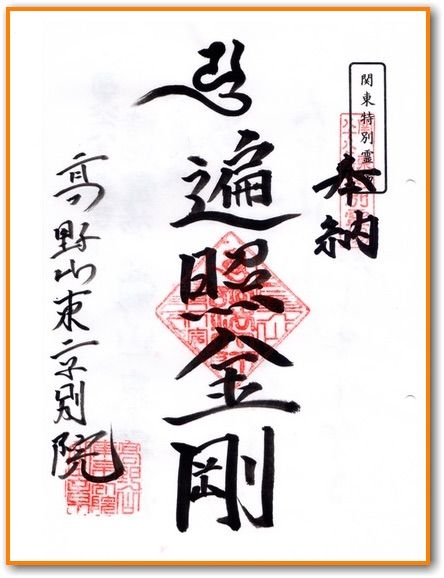 関東特別霊
奉納
遍照金剛
高野山東京別院